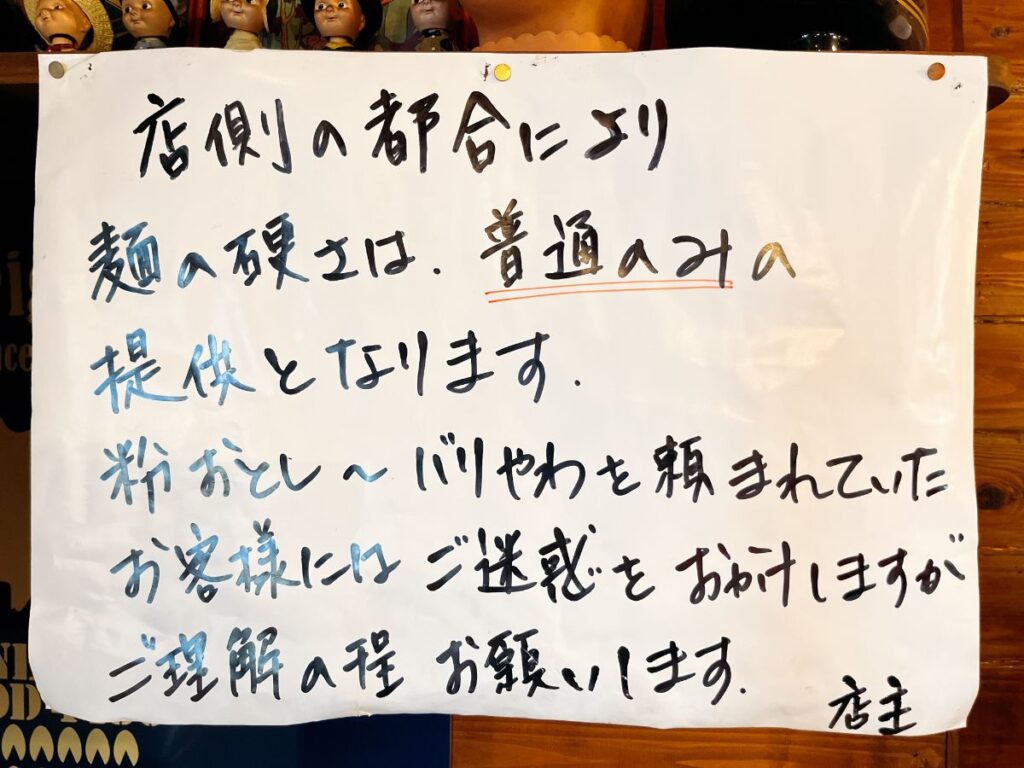 店側の都合により
麺の硬さは、普通のみの
提供となります。
粉おとし〜バリやわを頼まれていた
お客様にはご迷惑をおかけしますが
ご理解の程 お願いします。
店主